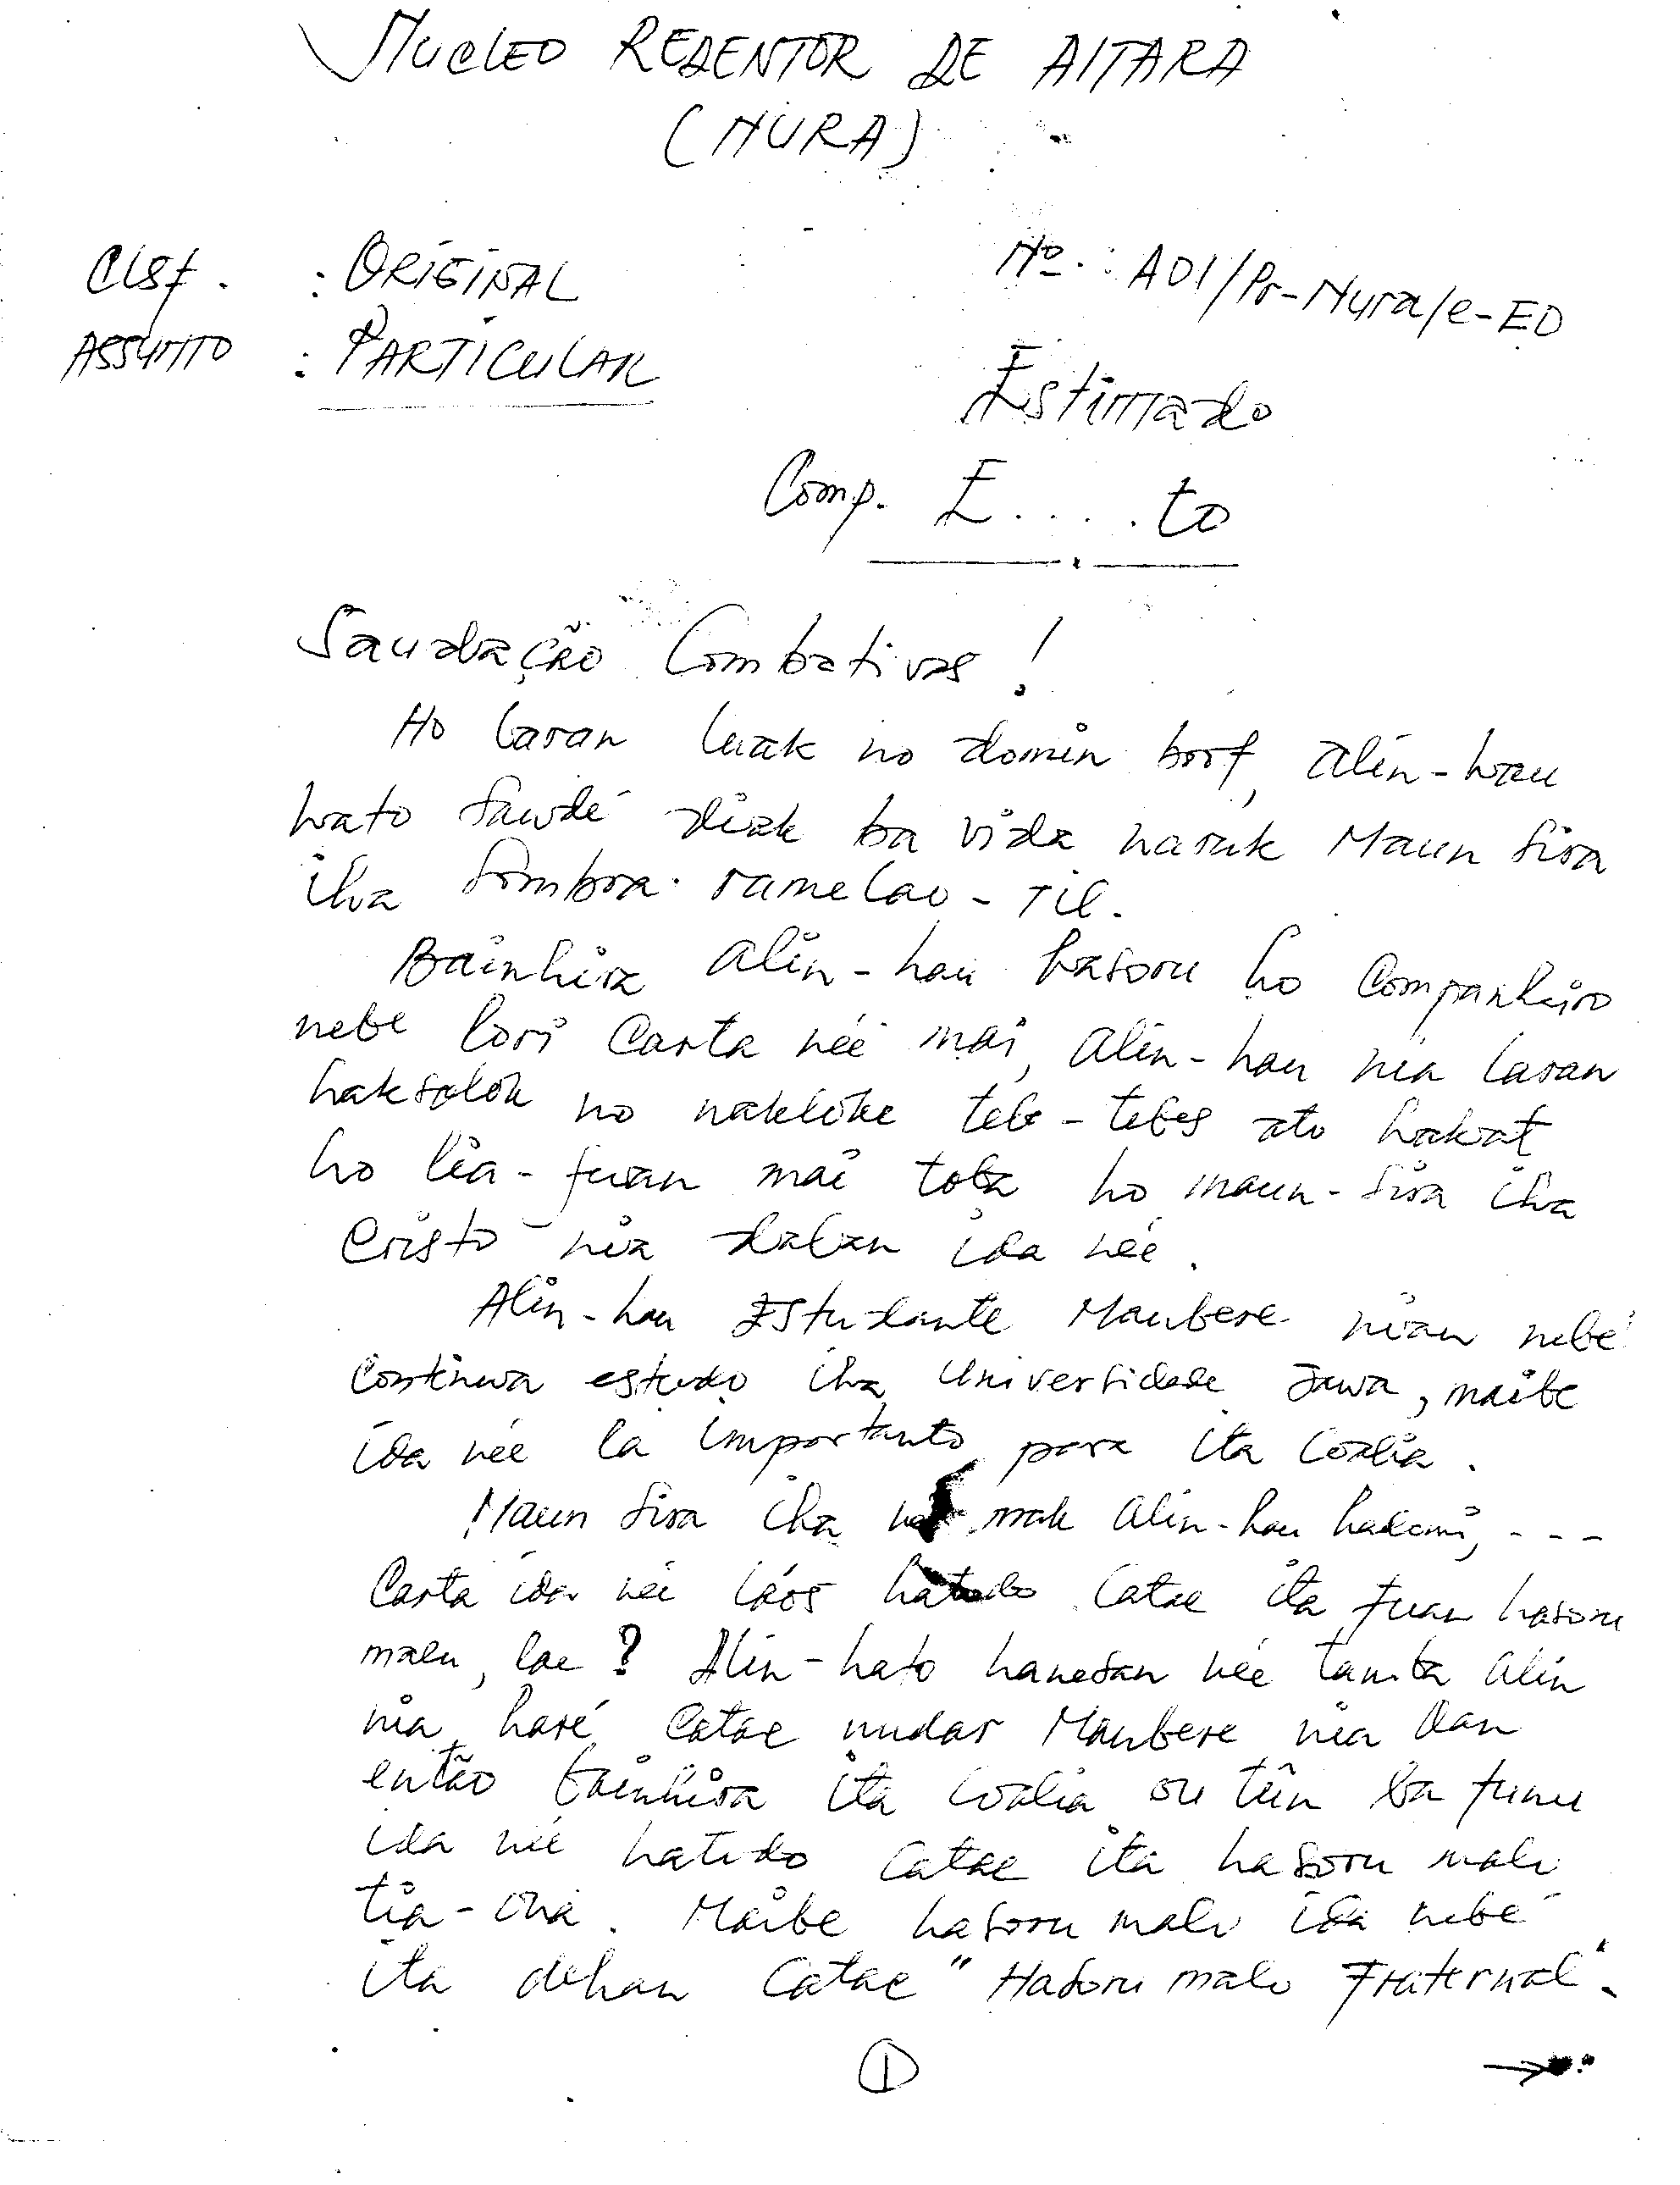 NUCLEO REDENTOR DE AITARA
(NURA)
Clsf. : ORIGINAL
Nº.: A01/Pr-Nura/e-ED
ASSUNTO : PARTICULAR
Estimado
Comp. E.....to
Saudação Combativas!
Ho laran luak no domin boot, alin-hau
hato saudé diak ba vida naruk Maun sira
iha sombra ramelao-TIL.
Bainhira alin-hau hasoru ho Companheiro
nebe lori Carta neé mai, alin-hau nia laran
haksolok no nakloke tebe-tebes ato hakat
ho lia-fuan mai toba ho maun-sira iha
Cristo nia dalan ida neé.
Alin-hau Estudante Maubere nian nebé
continua estudo iha Universidade Jawa, maibe
ida neé la importanto para ita coalia.
Maun sira iha mak alin-hau hadomi, ---
Carta ida neé láos hatudo catac ita fuan hasoru
malu, lae? Alin-hato hanesan neé tamba alin
nia haré catac nudar Maubere nia oan
então bainhira ita coalia ou tûn ba funu
ida neé hatudo catac ita hasoru malu
tia-ona. Maibe hasoru malu ida nebé
ita dehan catac "Hasoru malu Fraternal".
1